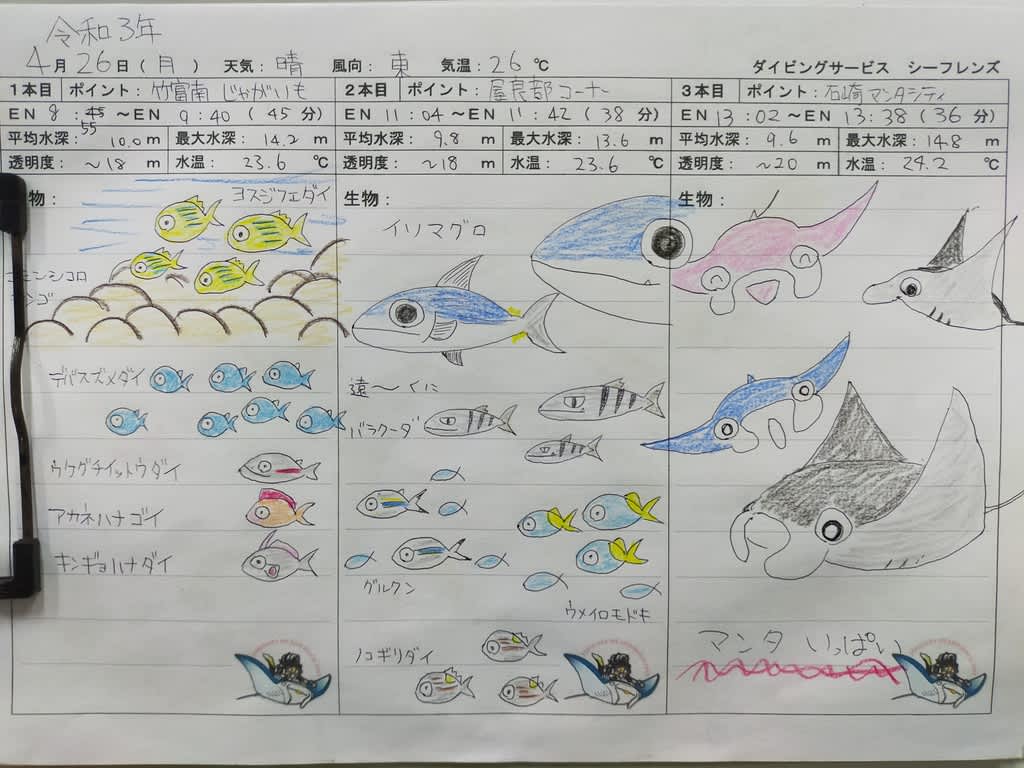 令和3年
4月26日(月) 天気:晴 風向:東 気温:26℃ ダイビングサービス シーフレンズ
1本目 ポイント:竹富南 じゃがいも
EN 8:55 ～EN 9:40 (45分)
平均水深: 10.0 m 最大水深: 14.2 m
透明度: ～18 m 水温: 23.6 ℃
物:
ヨスジフエダイ
コモンシコロ
サンゴ
デバスズメダイ
ウケグチイットウダイ
アカネハナゴイ
キンギョハナダイ
2本目 ポイント:屋良部コーナー
EN 11:04～EN 11:42 (38分)
平均水深: 9.8 m 最大水深: 13.6 m
透明度: ～18 m 水温: 23.6 ℃
生物:
イソマグロ
遠～くに
バラクーダ
グルクン
ウメイロモドキ
ノコギリダイ
3本目 ポイント:石崎マンタシティ
EN 13:02～EN 13:38 (36分)
平均水深: 9.6 m 最大水深: 14.8 m
透明度: ～20 m 水温: 24.2 ℃
生物:
マンタ いっぱい